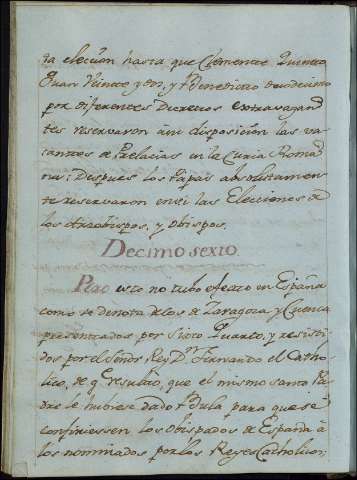 ta eleccion hasta que Clemente Quinto
Juan Veinte y dos, y Benedicto duodecimo
por diferentes Decretos extravagan
tes reservaron á su disposicion las va
cantes de Prelacias en la Curia Roma
na; Despues los Papas absolutamen
te reservaron en si las Elecciones de
los Arzobispos, y Obispos.
Decimo sexto
Pero esto no tubo efecto en España
como se denota de los de Zaragoza y Cuenca
presentados por Sixto Quarto, y resisti
dos por el Señor Rey Dn. Fernando el Catho
lico, de q. resulto, que el mismo santo Pa
dre le hubiese dado Bula para que se
confiriessen los Obispados de España á
los nominados por los Reyes Catholicos;